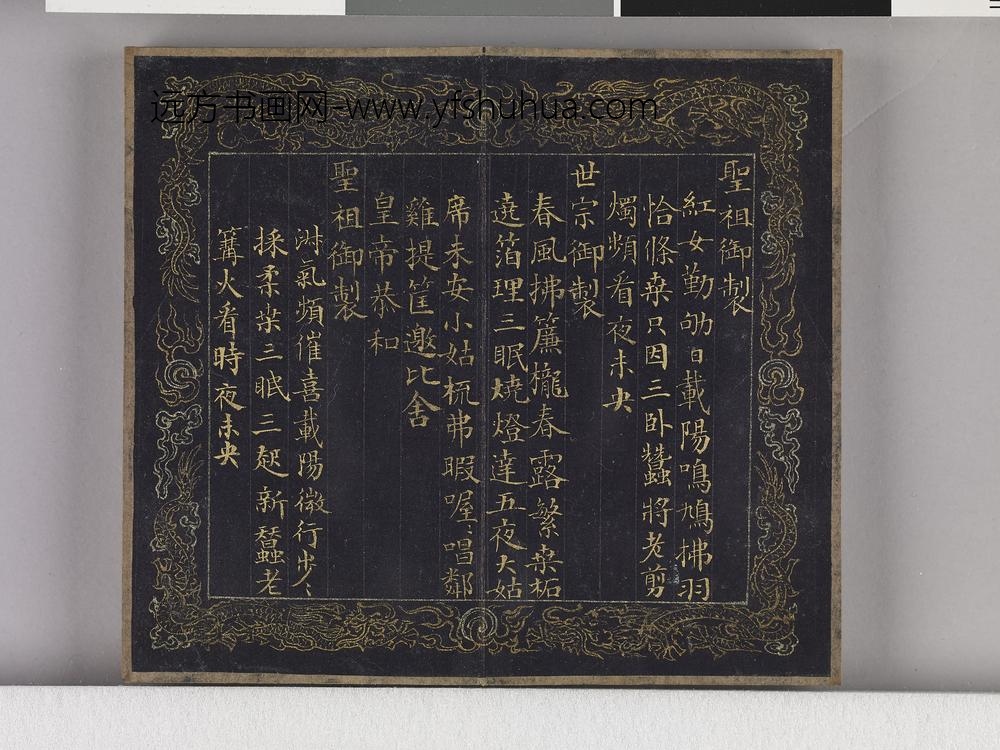 远方书画网-www.yfshuhua.com
聖祖御製
紅女勤劬日載陽鳴鳩拂羽
恰條桒只因三卧蠶將老剪
燭頻看夜未央
世宗御製
春風拂簾櫳春露繁桒柘
遶箔理三眠燒燈達五夜大姑
席未安小姑梳弗暇喔〻唱鄰
雞提筐邀比舍
皇帝恭和
聖祖御製
淑氣頻催喜載陽微行步〻
採柔桒三眠三起新蠶老
篝火看時夜未央